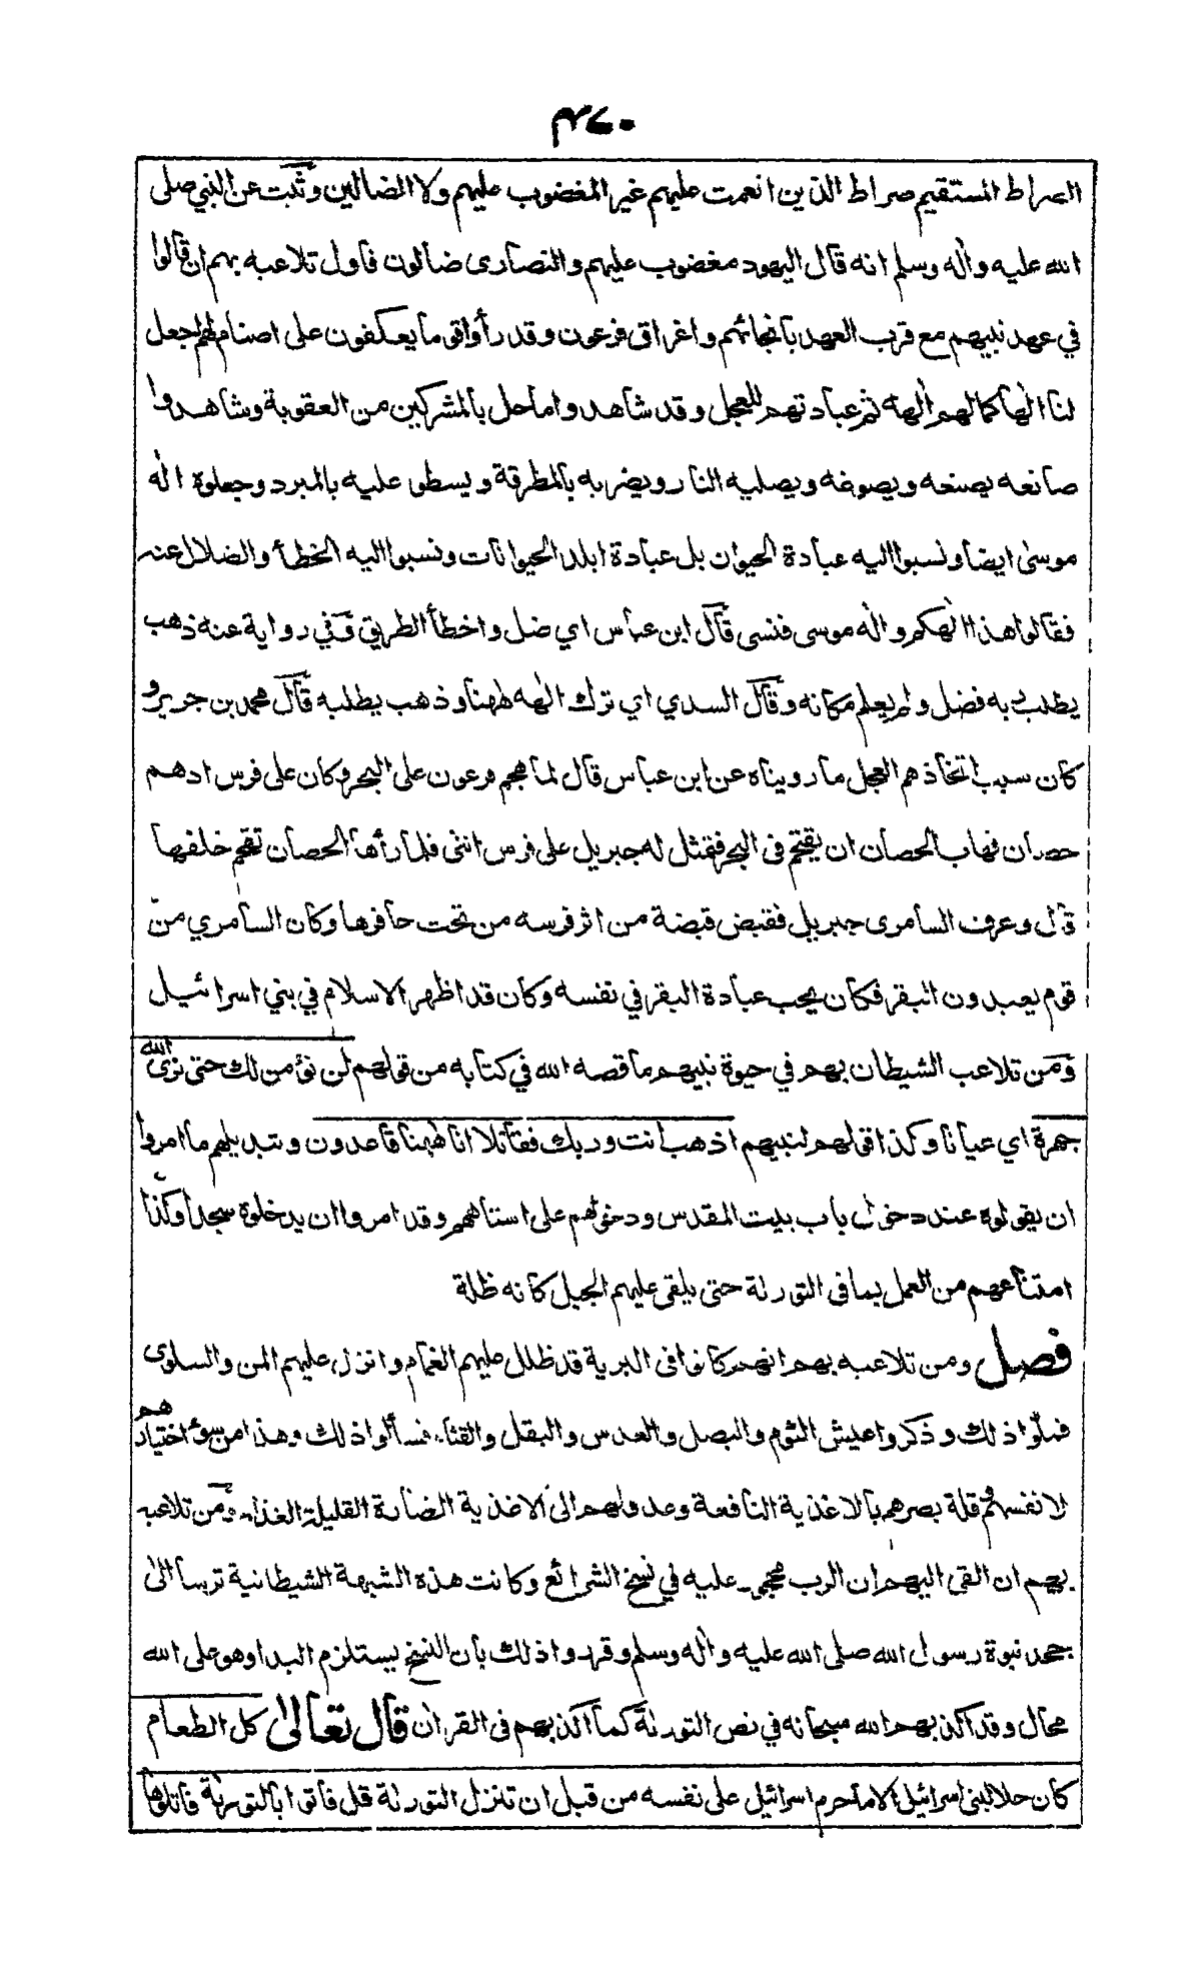 ٣٧٠
الصراط المستقيم صراط الذين انعمت عليهم غير المغضوب عليهم ولا الضالين وثبت عن النبي صلى
الله عليه واٰله وسلم انه قال اليهود مغضوب عليهم والنصارى ضالون فاول تلاعبه بهم ان قالوا
في عهد نبيهم مع قرب العهد بانجائهم واغراق فرعون وقد رأوا قوما يعكفون على اصنام لهم اجعل
لنا الٰها كما لهم اٰلهة ثم عبادتهم للعجل وقد شاهدوا ما حل بالمشركين من العقوبة وشاهدوا
صانعه يصنعه ويصوغه ويصليه النار ويضربه بالمطرقة ويسطى عليه بالمبرد وجعلوه اله
موسىٰ ايضا ونسبوا اليه عبادة الحيوان بل عبادة ابلد الحيوانات ونسبوا اليه الخطأ والضلال عنه
فقالوا هذا الٰهكم واله موسى فنسى قال ابن عباس اي ضل واخطأ الطريق وفي رواية عنه ذهب
يطلب به فضل ولم يعلم مكانه وقال السدي اي ترك الٰهه ههنا وذهب يطلبه قال محمد بن جرير و
كان سبب اتخاذهم العجل ما رويناه عن ابن عباس قال لما هجم فرعون على البحر وكان على فرس ادهم
حصان فهاب الحصان ان يقتحم فى البحر فتمثل له جبريل على فرس انثى فلما رأها الحصان تقحم خلفها
قال وعرف السامرى جبريل فقبض قبضة من اثر فرسه من تحت حافرها وكان السامري من
قوم يعبدون البقر فكان يحب عبادة البقر في نفسه وكان قد اظهر الاسلام في بني اسرائيل
ومن تلاعب الشيطان بهم في حيوة نبيهم ما قصه الله في كتابه من قولهم لن نؤمن لك حتى نرى الله
جهرة اي عيانا وكذا قولهم لنبيهم اذهب انت وربك فقاتلا انا ههنا قاعدون وتبديلهم ما امروا
ان يقولوه عند دخول باب بيت المقدس ودخولهم على استاههم وقد امروا ان يدخلوه سجدا وكذا
امتناعهم من العمل بما فى التورٰىة حتى يلقى عليهم الجبل كانه ظلة
فصل ومن تلاعبه بهم انهم كانوا فى البرية قد ظلل عليهم الغمام وانزل عليهم المن والسلوى
فملّوا ذلك وذكروا عيش الثوم والبصل والعدس والبقل والقثاء فسألوا ذلك وهذا من سوء اختيارهم
لانفسهم وقلة بصرهم بالاغذية النافعة وعدولهم الى الاغذية الضارة القليلة الغذاء ومن تلاعبه
بهم ان القى اليهم ان الرب محجور عليه في نسخ الشرائع وكانت هذه الشبهة الشيطانية ترسا الىٰ
جحد نبوة رسول الله صلى الله عليه واٰله وسلم وقرروا ذلك بان النسخ يستلزم البدا وهو على الله
محال وقد اكذبهم الله سبحانه في نص التورٰىة كما اكذبهم فى القران قال تعالىٰ كل الطعام
كان حلا لبنى اسرائيل الا ما حرم اسرائيل على نفسه من قبل ان تنزل التورٰىة قل فأتوا بالتورٰىة فاتلوها